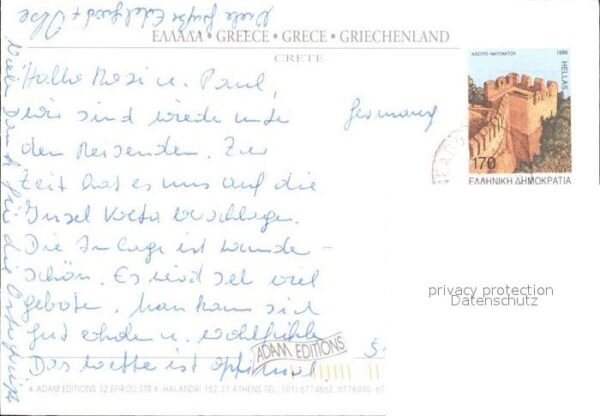 Viele Grüße Edelgard + Ilse
ΕΛΛΑΔΑ • GREECE • GRECE • GRIECHENLAND
CRETE
ΚΑΣΤΡΟ ΝΑΥΠΑΚΤΟΥ 1998
HELLAS
170
ΕΛΛΗΝΙΚΗ ΔΗΜΟΚΡΑΤΙΑ
Hallo Rosi u. Paul,
Wir sind wieder unter
den Reisenden. Zur
Zeit hat es uns auf die
Insel Kreta verschlagen.
Die Anlage ist wunder-
schön. Es wird sehr viel
geboten. Man kann sich
gut erholen u. wohlfühlen
Das Wetter ist optimal.
Germany
Vielen Dank für die Ostergrüße
privacy protection
Datenschutz
ADAM EDITIONS
ADAM EDITIONS 32 EPIROU STR K. HALANDRI 152 31 ATHENS TEL.: (01) 6774662, 6778440, 67